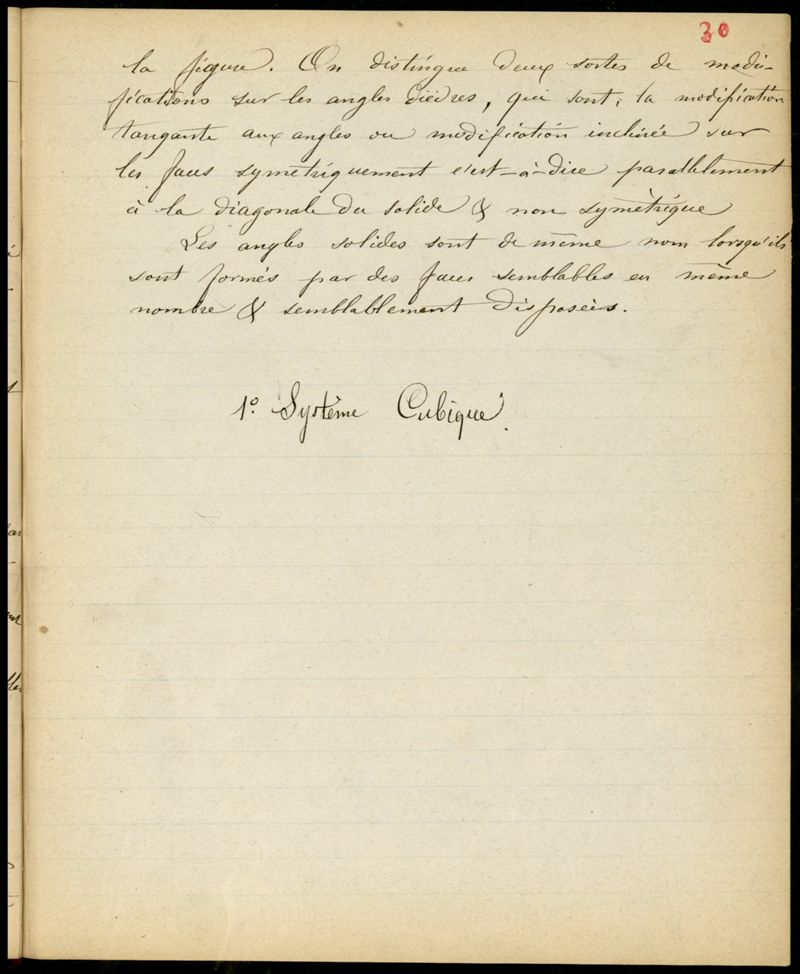 30
la figure. On distingue deux sortes de modi-
fications sur les angles dièdres, qui sont, la modification
tangante aux angles ou modification inclinée sur
les faces symétriquement c'est-à-dire parallèlement
à la diagonale du solide & non symètrique
Les angles solides sont de même nom lorsqu'ils
sont formés par des faces semblables en même
nombre & semblablement disposées.
1º Système Cubique.